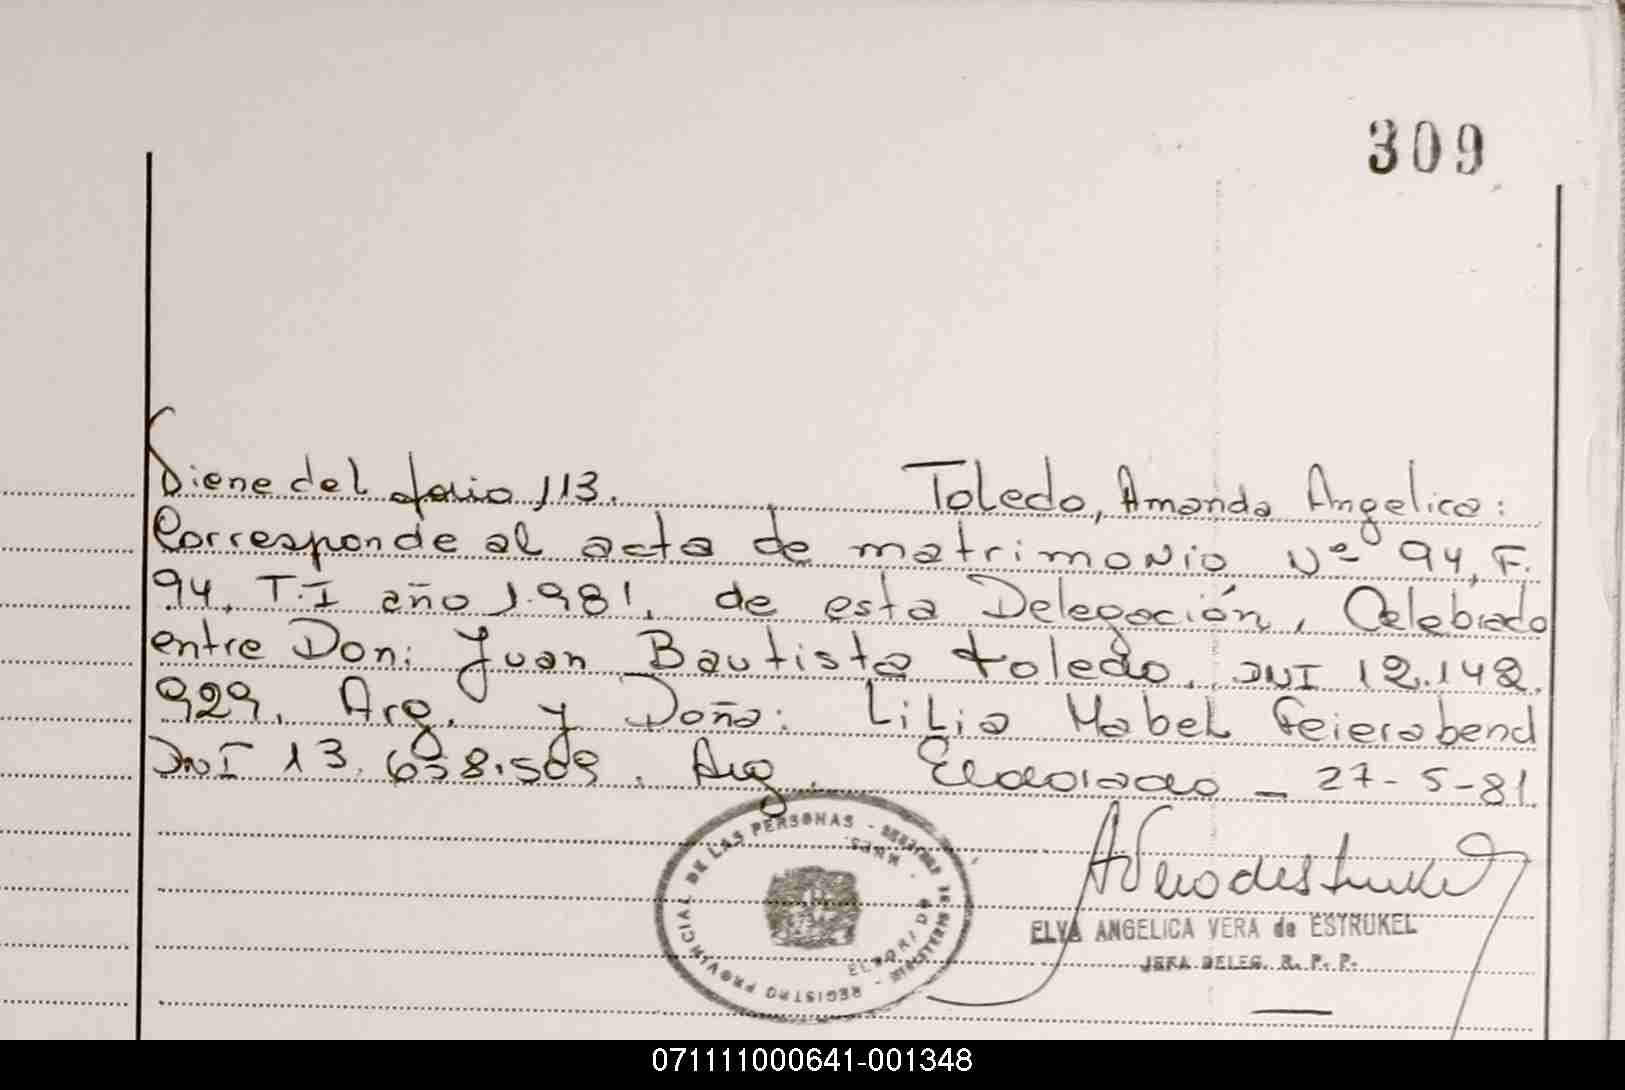 309
Viene del folio 113. Toledo, Amanda Angelica:
Corresponde al acta de matrimonio Nº 94, F.
94, T.I año 1.981, de esta Delegación, Celebrado
entre Don: Juan Bautista toledo, DNI 12.142.
929, Arg. y Doña: Lilia Mabel Feierabend
DNI 13.658.509, Arg. Eldorado - 27-5-81.
REGISTRO PROVINCIAL DE LAS PERSONAS
ELDORADO
ELVA ANGELICA VERA de ESTRUKEL
JEFA DELEG. R. P. P.
071111000641-001348